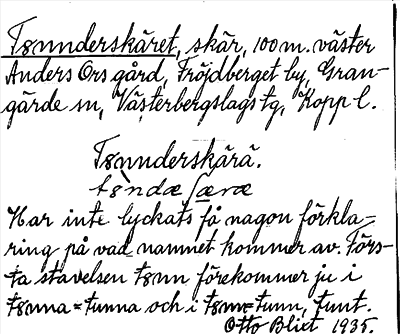 Tønnderskäret, skär, 100 m. väster
Anders Ors gård, Fröjdberget by, Gran-
gärde sn, Västerbergslags tg, Kopp l.
Tønnderskärä.
tøndæʃæræ
Har inte lyckats få nagon förkla-
ring på vad namnet kommer av. Förs-
ta stavelsen tønn förekommer ju i
tønna = tunna och i tønn = tunn, tunt.
Otto Blixt 1935.